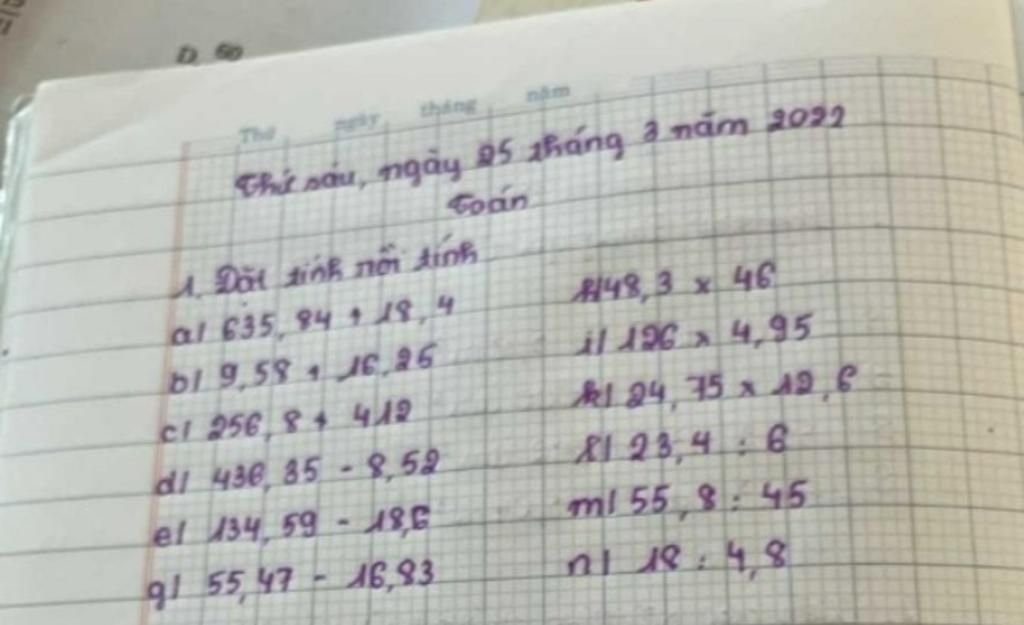 D. 50
Thứ ngày tháng năm
Thứ sáu, ngày 25 tháng 3 năm 2022
Toán
1. Đặt tính rồi tính
a) 635,84 + 18,4
b) 9,58 + 16,25
c) 256,8 + 412
d) 436,35 - 8,52
e) 134,59 - 18,6
g) 55,47 - 16,83
h) 48,3 x 46
i) 126 x 4,95
k) 24,75 x 12,6
l) 23,4 : 6
m) 55,8 : 45
n) 18 : 4,8